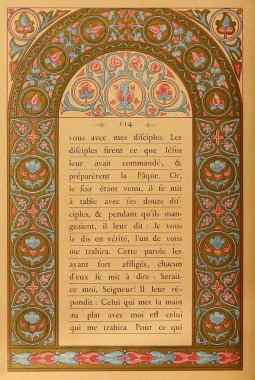 114
vous avec mes diſciples. Les
diſciples firent ce que Jéſus
leur avait commandé, &
préparèrent la Pâque. Or,
le ſoir étant venu, il ſe mit
à table avec ſes douze diſ-
ciples, & pendant qu'ils man-
geaient, il leur dit : Je vous
le dis en vérité, l'un de vous
me trahira. Cette parole les
ayant fort affligés, chacun
d'eux ſe mit à dire : Serait-
ce moi, Seigneur! Il leur ré-
pondit : Celui qui met ſa main
au plat avec moi eſt celui
qui me trahira. Pour ce qui